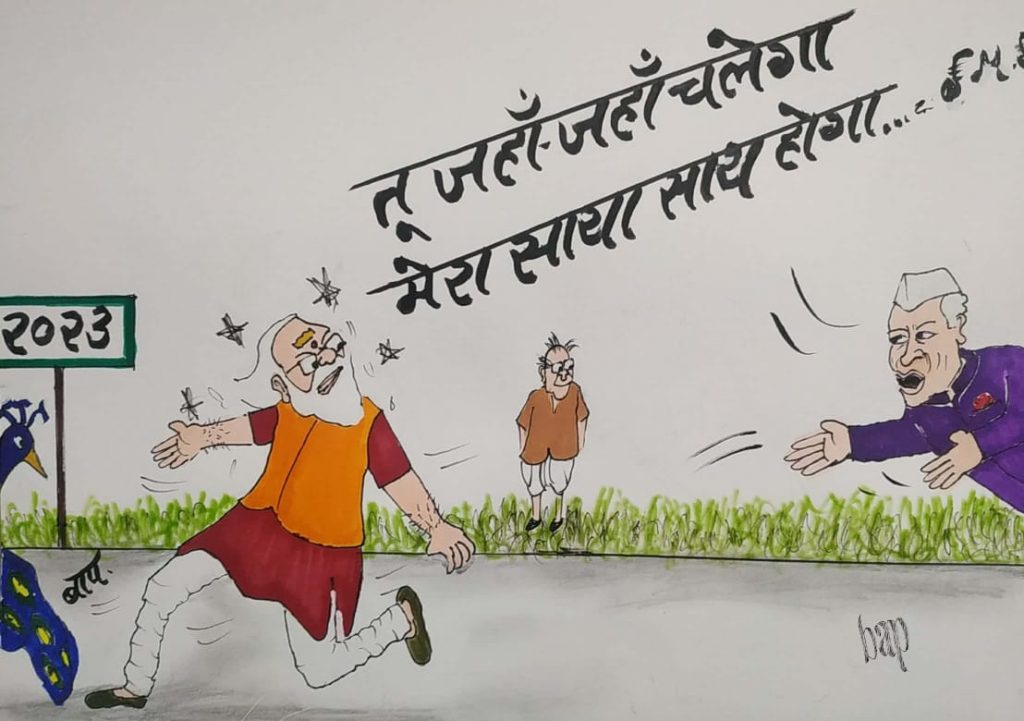 तू जहाँ-जहाँ चलेगा
मेरा साया साथ होगा...
२०२३
बाप.
bap